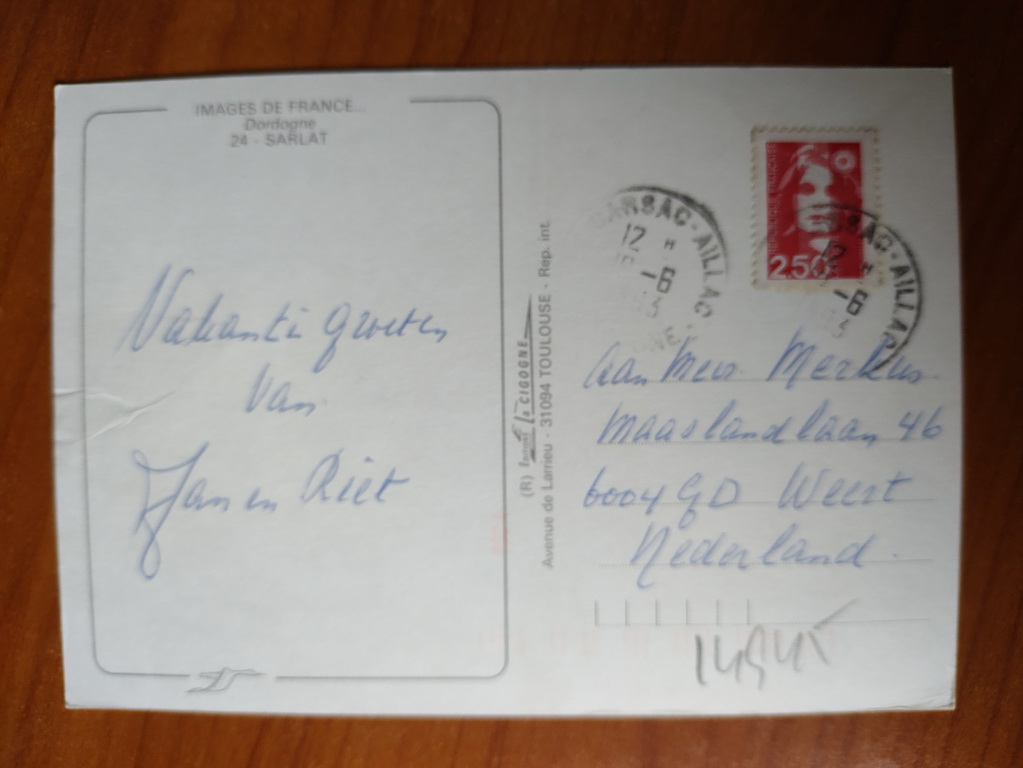 IMAGES DE FRANCE...
Dordogne
24 - SARLAT
Vakantie groeten
van
Jan en Riet
(R) Editions la CIGOGNE
Avenue de Larrieu - 31094 TOULOUSE - Rep. int.
CARSAC-AILLAC
12 H
-6
2.50
CARSAC-AILLAC
12 H
-6
Aan Mevr. Merkus
Maaslandlaan 46
6004 GD Weert
Nederland.